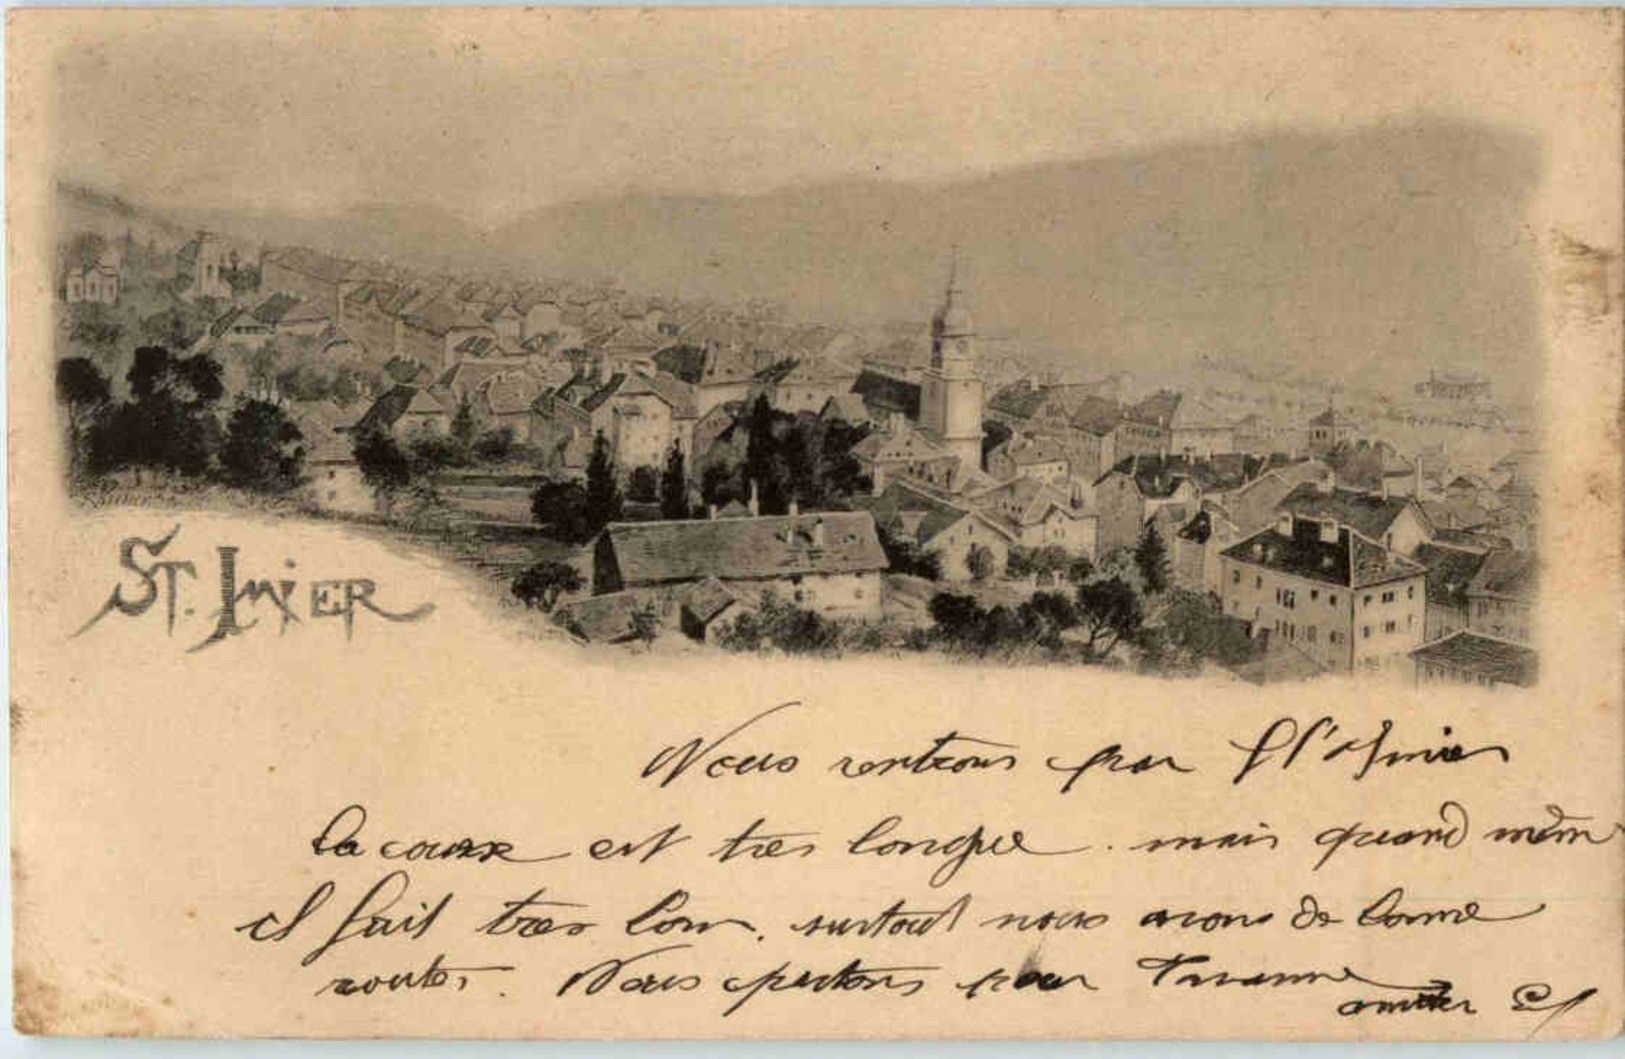 ST. IMIER
Nous rentrons par St Imier
la course est très longue. mais quand mêm
il fait très bon. surtout nous avons de bonne
routes. Nous partons pour Tavanne